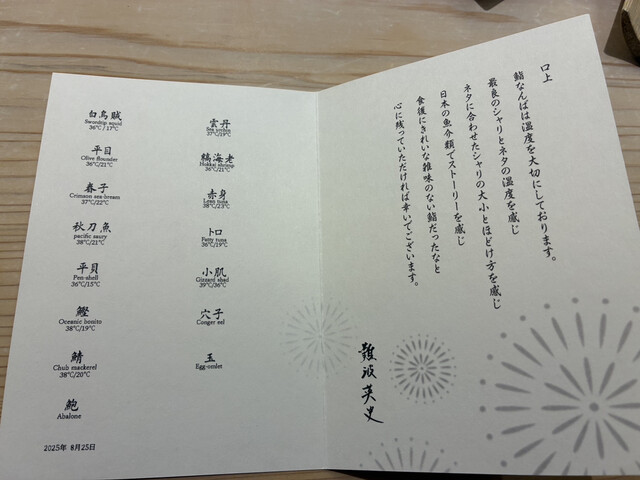 白烏賊
Swordtip squid
36℃/17℃
平目
Olive flounder
36℃/21℃
春子
Crimson sea bream
37℃/22℃
秋刀魚
pacific saury
38℃/21℃
平貝
Pen-shell
36℃/15℃
鰹
Oceanic bonito
38℃/19℃
鯖
Chub mackerel
38℃/20℃
鮑
Abalone
雲丹
Sea urchin
37℃/19℃
縞海老
Hokkai shrimp
36℃/21℃
赤身
Lean tuna
38℃/23℃
トロ
Fatty tuna
36℃/19℃
小肌
Gizzard shad
39℃/36℃
穴子
Conger eel
玉
Egg-omlet
2025年 8月25日
口上
鮨なんばは温度を大切にしております。
最良のシャリとネタの温度を感じ
ネタに合わせたシャリの大小とほどけ方を感じ
日本の魚介類でストーリーを感じ
食後にきれいな雑味のない鮨だったなと
心に残っていただければ幸いでございます。
難波英史